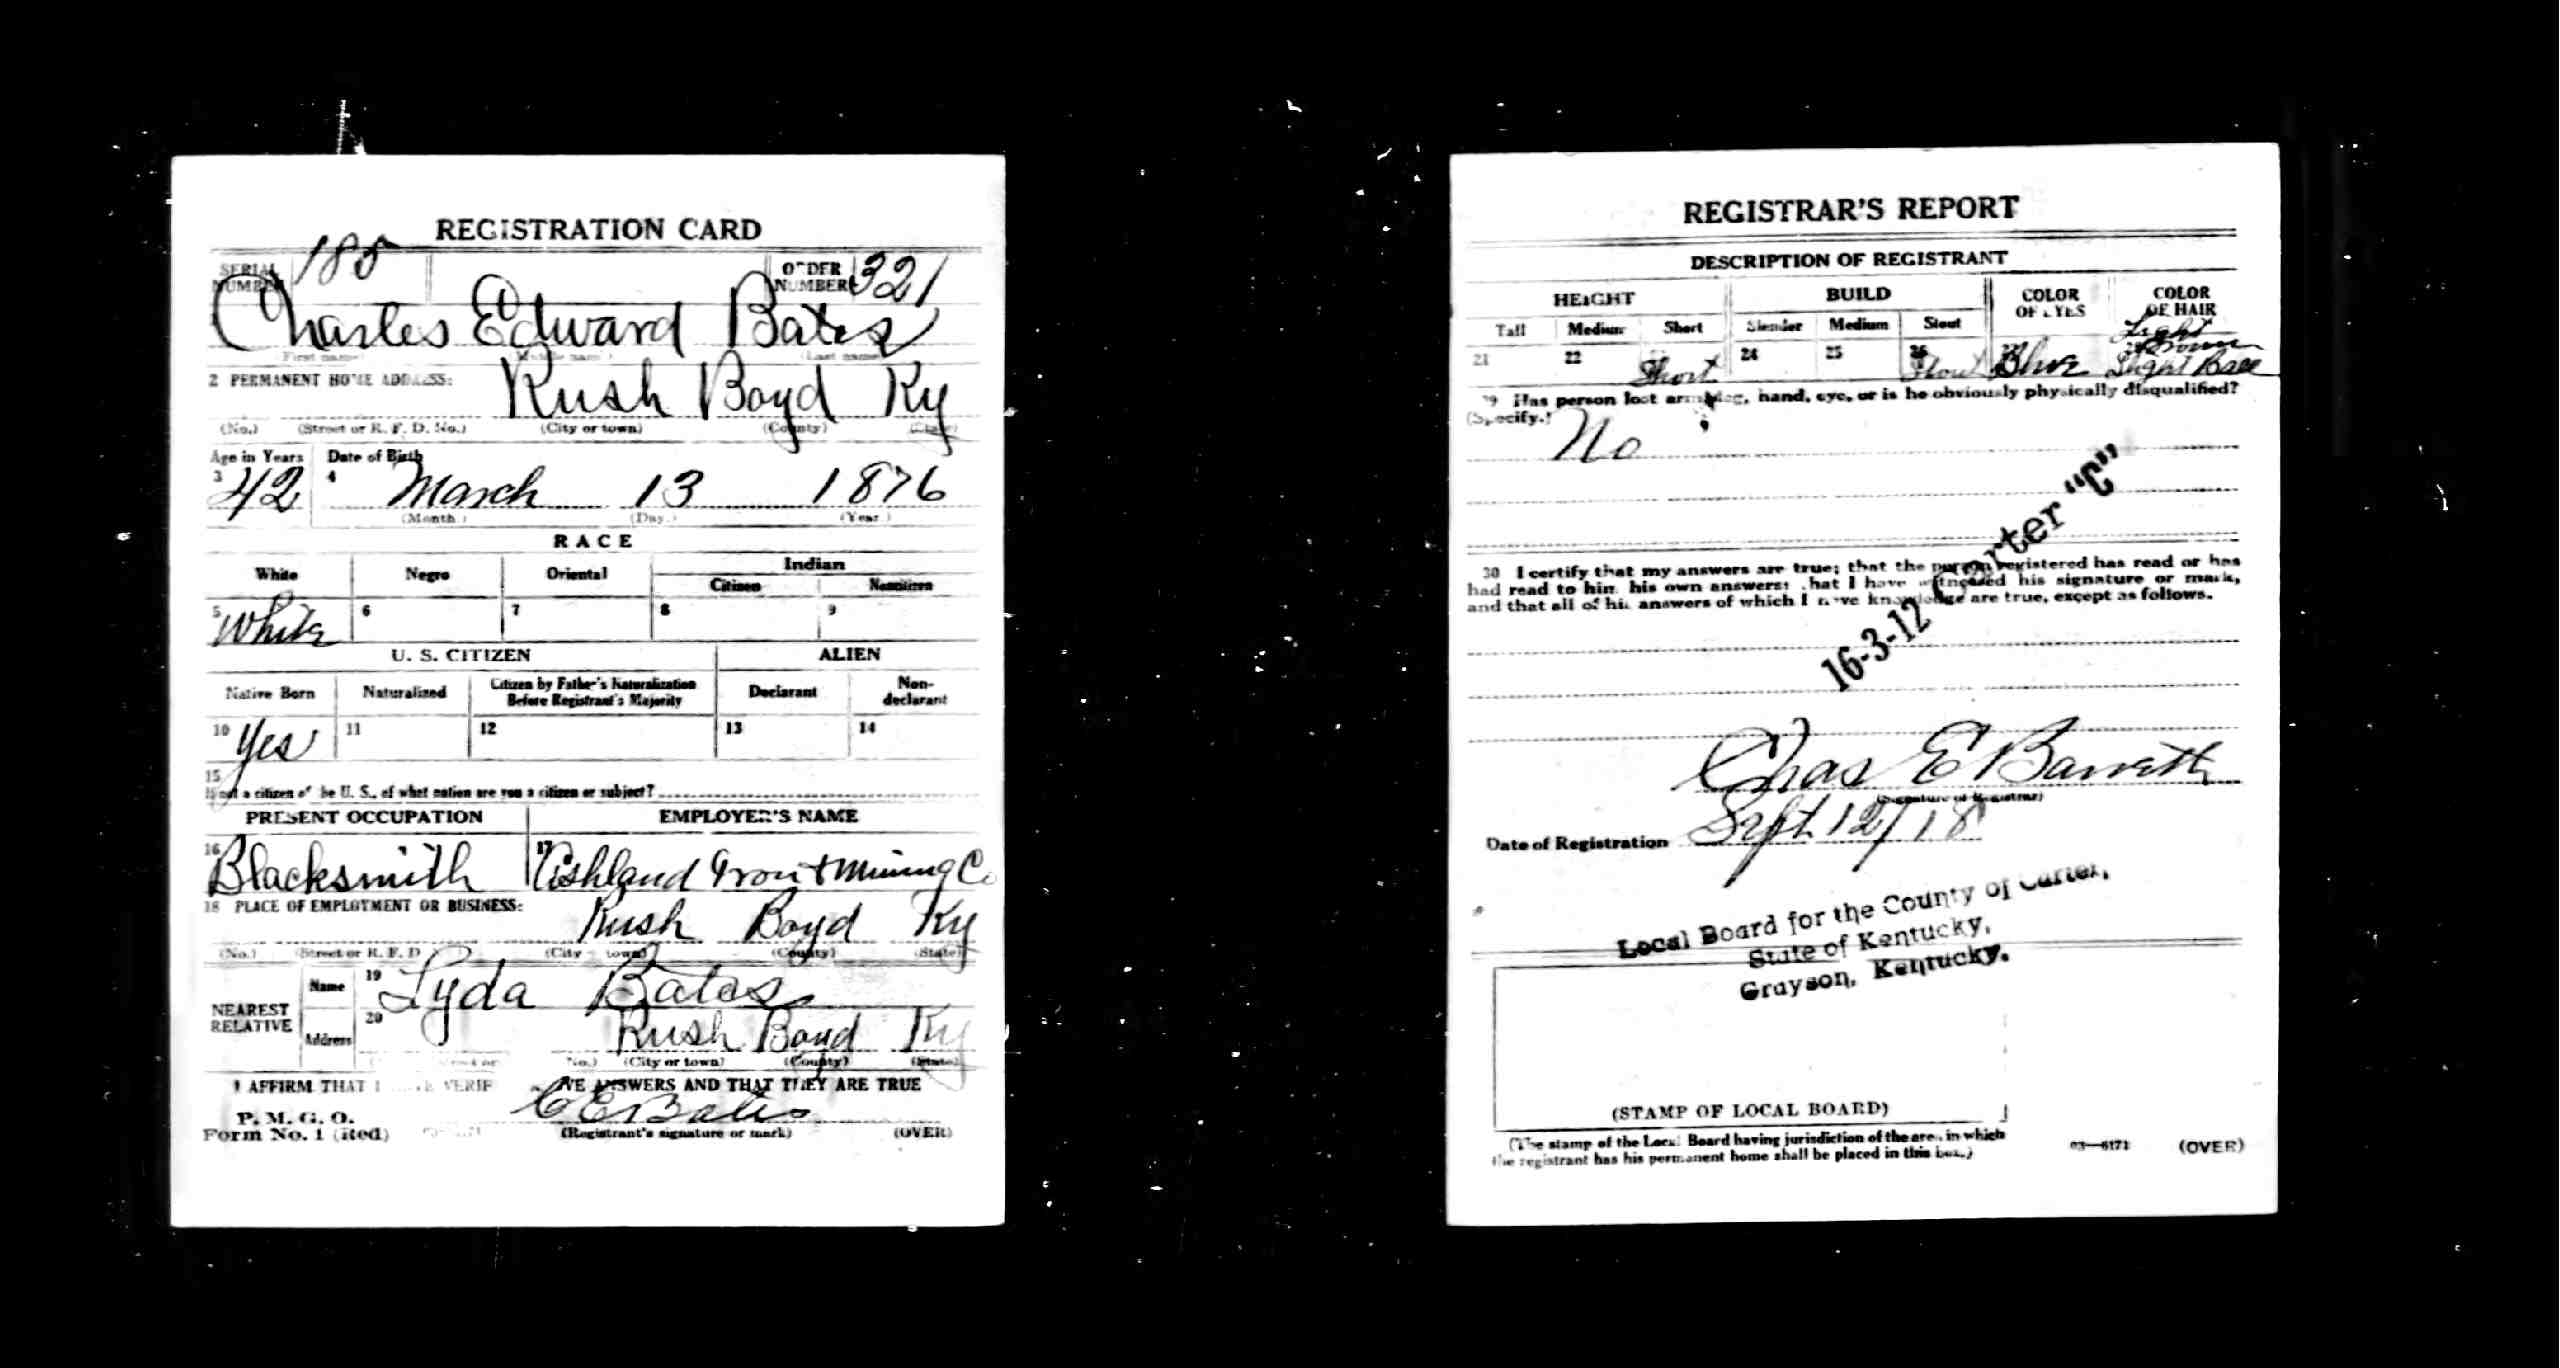 REGISTRATION CARD
SERIAL NUMBER 185
ORDER NUMBER 321
Charles Edward Bates
(First name) (Middle name) (Last name)
2 PERMANENT HOME ADDRESS: Rush Boyd Ky
(No.) (Street or R. F. D. No.) (City or town) (County) (State)
Age in Years Date of Birth
3 42 4 March 13 1876
(Month.) (Day.) (Year.)
RACE
White Negro Oriental Indian
Citizen Noncitizen
5 White 6 7 8 9
U. S. CITIZEN ALIEN
Native Born Naturalized Citizen by Father's Naturalization Before Registrant's Majority Declarant Non-declarant
10 Yes 11 12 13 14
15
If not a citizen of the U. S., of what nation are you a citizen or subject?
PRESENT OCCUPATION EMPLOYER'S NAME
16 Blacksmith 17 Ashland Iron + Mining Co
18 PLACE OF EMPLOYMENT OR BUSINESS: Rush Boyd Ky
(No.) (Street or R. F. D (City town) (County) (State)
NEAREST RELATIVE
Name 19 Lyda Bates
Address 20 Rush Boyd Ky
No.) (City or town) (County) (State)
I AFFIRM THAT I VERIF VE ANSWERS AND THAT THEY ARE TRUE
P. M. G. O.
Form No. 1 (Red)
C E Bates
(Registrant's signature or mark) (OVER)
REGISTRAR'S REPORT
DESCRIPTION OF REGISTRANT
HEIGHT BUILD COLOR OF EYES COLOR OF HAIR
Tall Medium Short Slender Medium Stout
21 22 Short 24 25 26 Stout Blue Light Brown
Light Bald
29 Has person lost arm, leg, hand, eye, or is he obviously physically disqualified?
(Specify.) No
30 I certify that my answers are true; that the person registered has read or has
had read to him his own answers; that I have witnessed his signature or mark,
and that all of his answers of which I have knowledge are true, except as follows.
16-3-12 Carter "C"
Chas E Barrett
(Signature of Registrar)
Date of Registration Sept 12/18
Local Board for the County of Carter,
State of Kentucky,
Grayson, Kentucky.
(STAMP OF LOCAL BOARD)
(The stamp of the Local Board having jurisdiction of the area in which
the registrant has his permanent home shall be placed in this box.)
03—6171 (OVER)